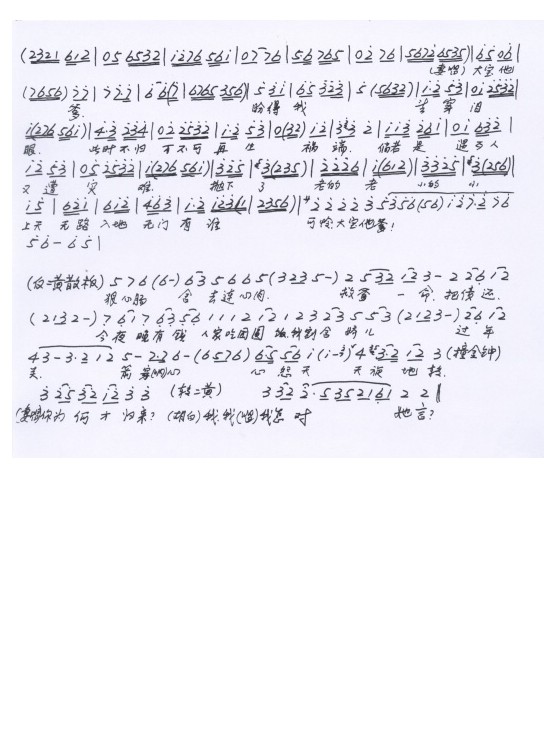 (2321 612 | 05 6532 | i276 56i | 0776 | 56 765 | 0276 | 5672 6535) | 65 06 |
(妻唱) 大宝他
(7656) 22 | 722 | 66(7 | 6765 356) | 53i | 65 323 | 5 (5632) | i·2 53 | 0i 2532 |
爹 盼得我 望穿泪
i(276 56i) | 4·3 234 | 02 2532 | i·2 53 | 0(32) i2 | 3 3 2 | ii3 26i | 0i 632 |
眼. 此时不归 可不可再生 祸端. 倘若是 遇歹人
i2 53 | 05 2532 | i(276 56i) | 325 | 3(235) | 2226 | i(6i2) | 3325 | 3(256) |
又遭灾难. 抛下了 老的老 小的小
i5 | 62i | 6i2 | 463 | i·2 i23(i | 2356) | 2 2 2 2 3 5356(56) i 2 7·2 76
上天无路 入地无门 有谁 可怜大宝他爹!
56 - 65 |
(反二黄散板) 5 7 6 (6-) 63 5 6 6 5 (3235-) 2 532 i23 - 2 26 i2
狠心肠 舍去连心肉. 救爹一命 把债还.
(2132-) 7 6i7 63 56 1 1 1 2 12 1 2 3 23 5 53 (2123-) 26 i2
今夜晚有钱人家吃团圆 我割舍娇儿 过年
43-3·212 5-2·76-(6576) 65 56 i (i-3) 4 3·2 i2 3 (撞金钟)
关. 箭穿的心 心怨天 天旋地转.
3 25 32 i2 3 3 (转二黄) 3 32 2·5352161 2 2 ‖
(妻唱) 你为何才归来? (胡白) 我, 我 (唱) 我怎对 她言?